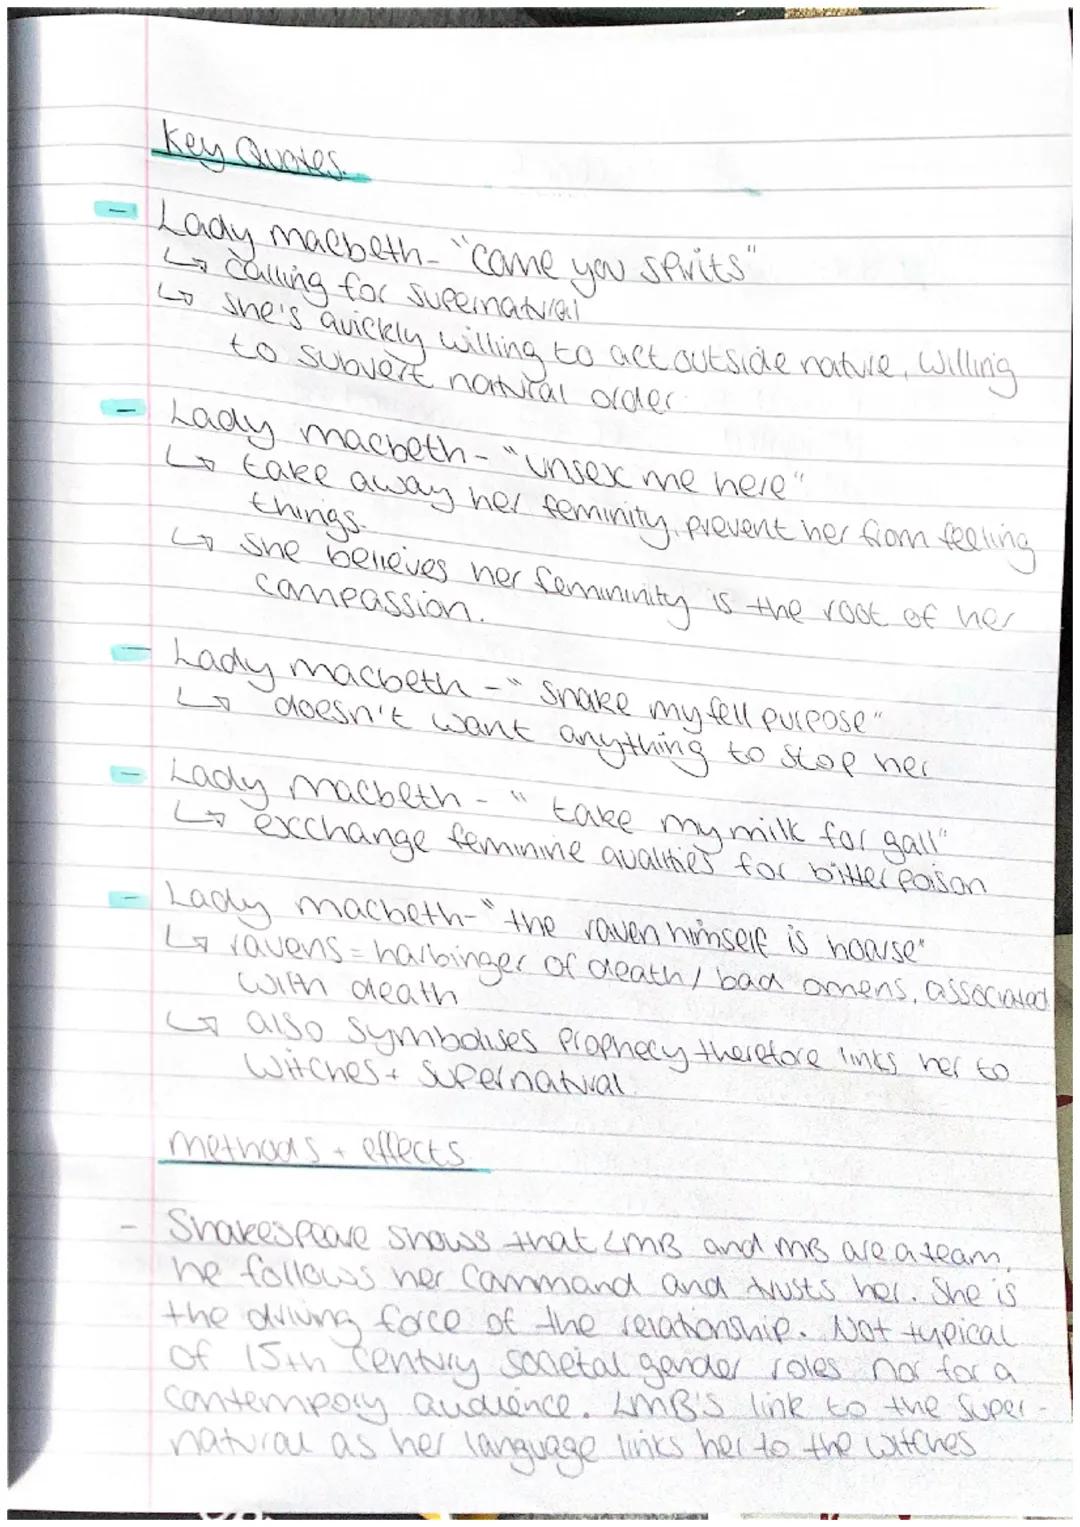 Key Quotes.
- Lady macbeth - "come you spirits"
↳ calling for supernatural
↳ she's quickly willing to act outside nature, willing
to subvert natural order.
- Lady macbeth - "unsex me here"
↳ take away her feminity, prevent her from feeling
things.
↳ She believes her femininity is the root of her
compassion.
- Lady macbeth - "shake my fell purpose"
↳ doesn't want anything to stop her
- Lady macbeth - "take my milk for gall"
↳ exchange feminine qualities for bitter poison
- Lady macbeth - "the raven himself is hoarse"
↳ ravens = harbinger of death / bad omens, associated
with death
↳ also symbolises prophecy therefore links her to
witches + supernatural.
methods + effects
- Shakespeare shows that LMB and MB are a team,
he follows her command and trusts her. She is
the driving force of the relationship. Not typical
of 15th century societal gender roles nor for a
contempory audience. LMB's link to the super-
natural as her language links her to the witches